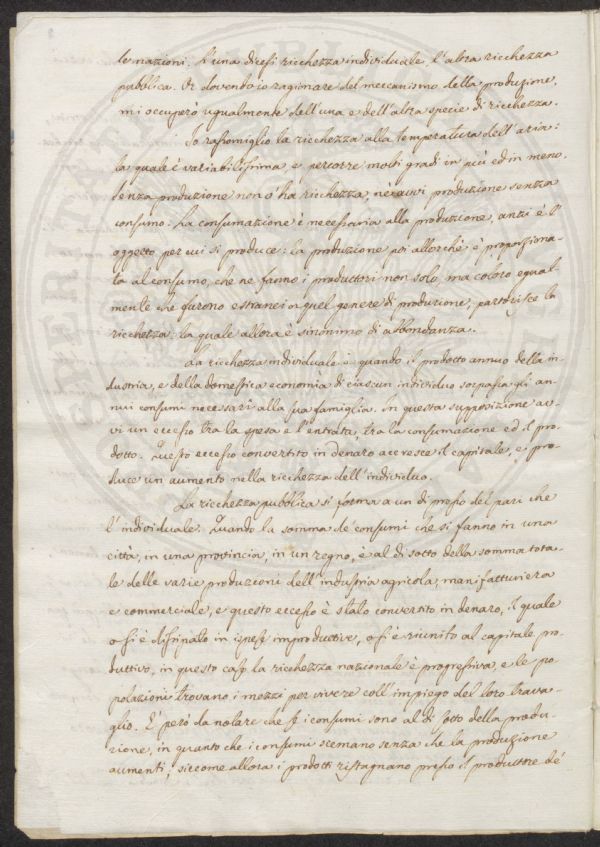 le nazioni. L'una dicesi ricchezza individuale, l'altra ricchezza
pubblica. Or dovendo io ragionare del meccanismo della produzione,
mi occuperò ugualmente dell'una e dell'altra specie di ricchezza.
Io rassomiglio la ricchezza alla temperatura dell'aria:
la quale è variabilissima e percorre molti gradi in più ed in meno.
Senza produzione non v'ha ricchezza, nè avvi produzione senza
consumo. La consumazione è necessaria alla produzione, anzi è l'
oggetto per cui si produce: la produzione poi allorchè è proporziona-
ta al consumo, che ne fanno i produttori non solo, ma coloro egual-
mente che furono estranei a quel genere di produzione, partorisce la
ricchezza, la quale allora è sinonimo di abbondanza.
La ricchezza individuale è quando il prodotto annuo della in-
dustria, e della domestica economia di ciascun individuo sorpassa gli an-
nui consumi necessarî alla sua famiglia. In questa supposizione av-
vi un eccesso tra la spesa e l'entrata, tra la consumazione ed il pro-
dotto. Questo eccesso convertito in denaro accresce il capitale, e pro-
duce un aumento nella ricchezza dell'individuo.
La ricchezza pubblica si forma a un di presso del pari che
l'individuale. Quando la somma de' consumi che si fanno in una
città, in una provincia, in un regno, è al di sotto della somma tota-
le delle varie produzioni dell'industria agricola, manifatturiera
e commerciale, e questo eccesso è stato convertito in denaro, il quale
o si è dissipato in ispese improduttive, o si è riunito al capitale pro-
duttivo, in questo caso la ricchezza nazionale è progressiva, e le po-
polazioni trovano i mezzi per vivere coll'impiego del loro trava-
glio. E' però da notare che se i consumi sono al di sotto della produ-
zione, in quanto che i consumi scemano senza che la produzione
aumenti, siccome allora i prodotti ristagnano presso il produttore de'